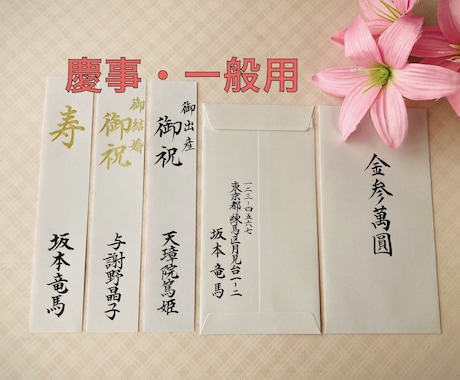 慶事・一般用
寿
坂本竜馬
御結婚
御祝
与謝野晶子
御出産
御祝
天璋院篤姫
一二三-四五六七
東京都練馬区月見台一-二
坂本竜馬
金参萬圓